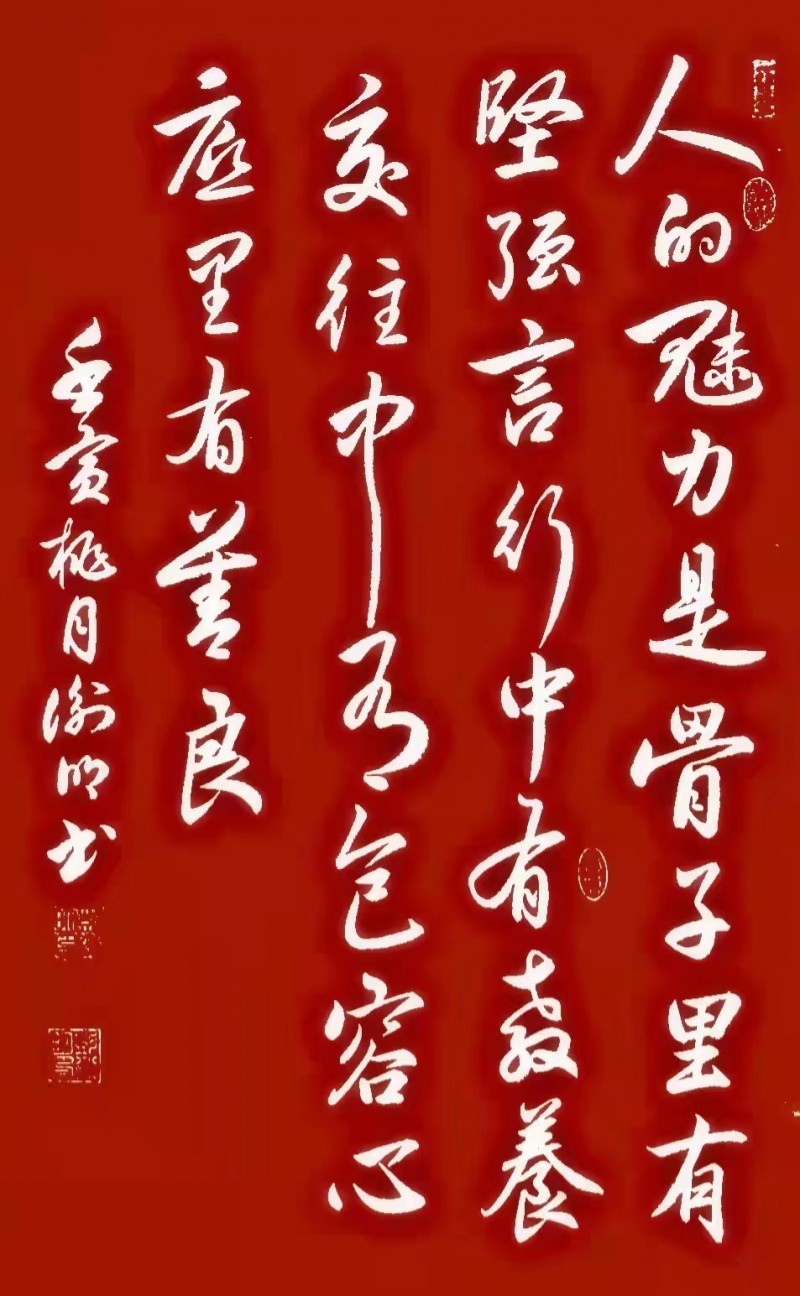 人的魅力是骨子里有
坚强言行中有教養
交往中有包容心
底里有善良
壬寅桃月 明书